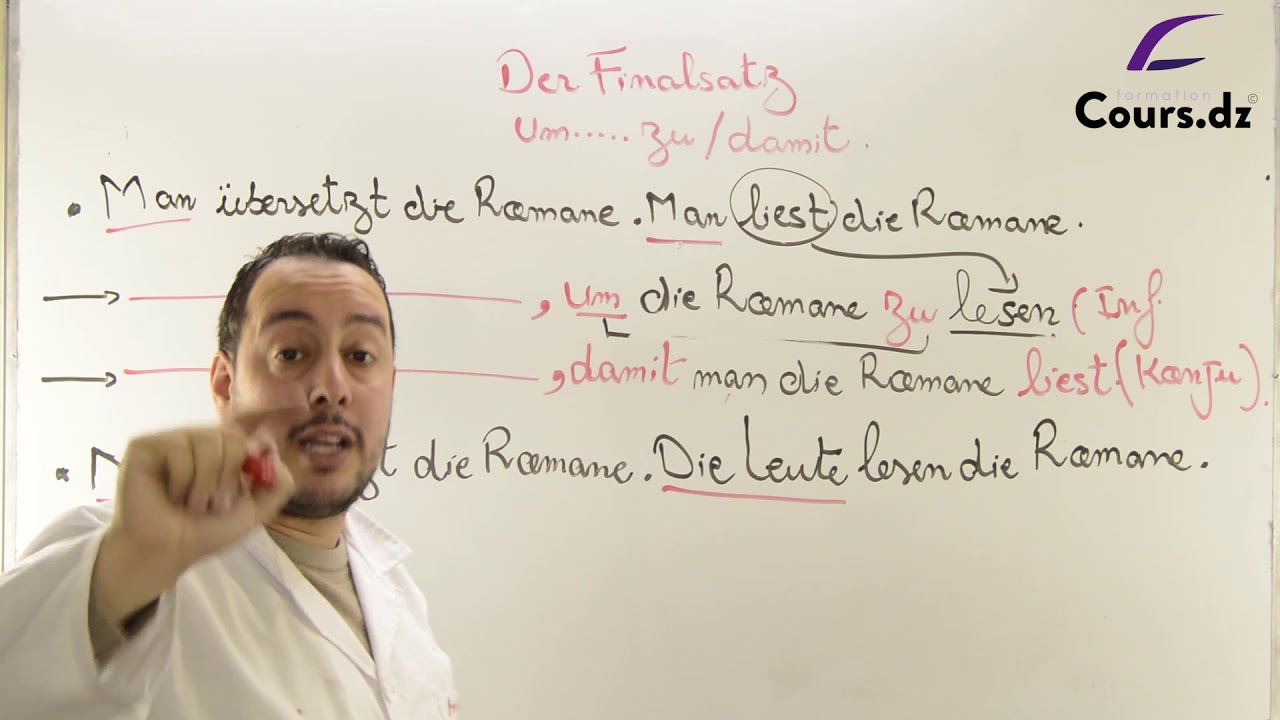 formation
Cours.dz©
Der Finalsatz
Um..... zu / damit.
• Man übersetzt die Romane. Man liest die Romane.
→ , um die Romane zu lesen (Inf.
→ , damit man die Romane liest. (Konju).
• die Romane. Die Leute lesen die Romane.